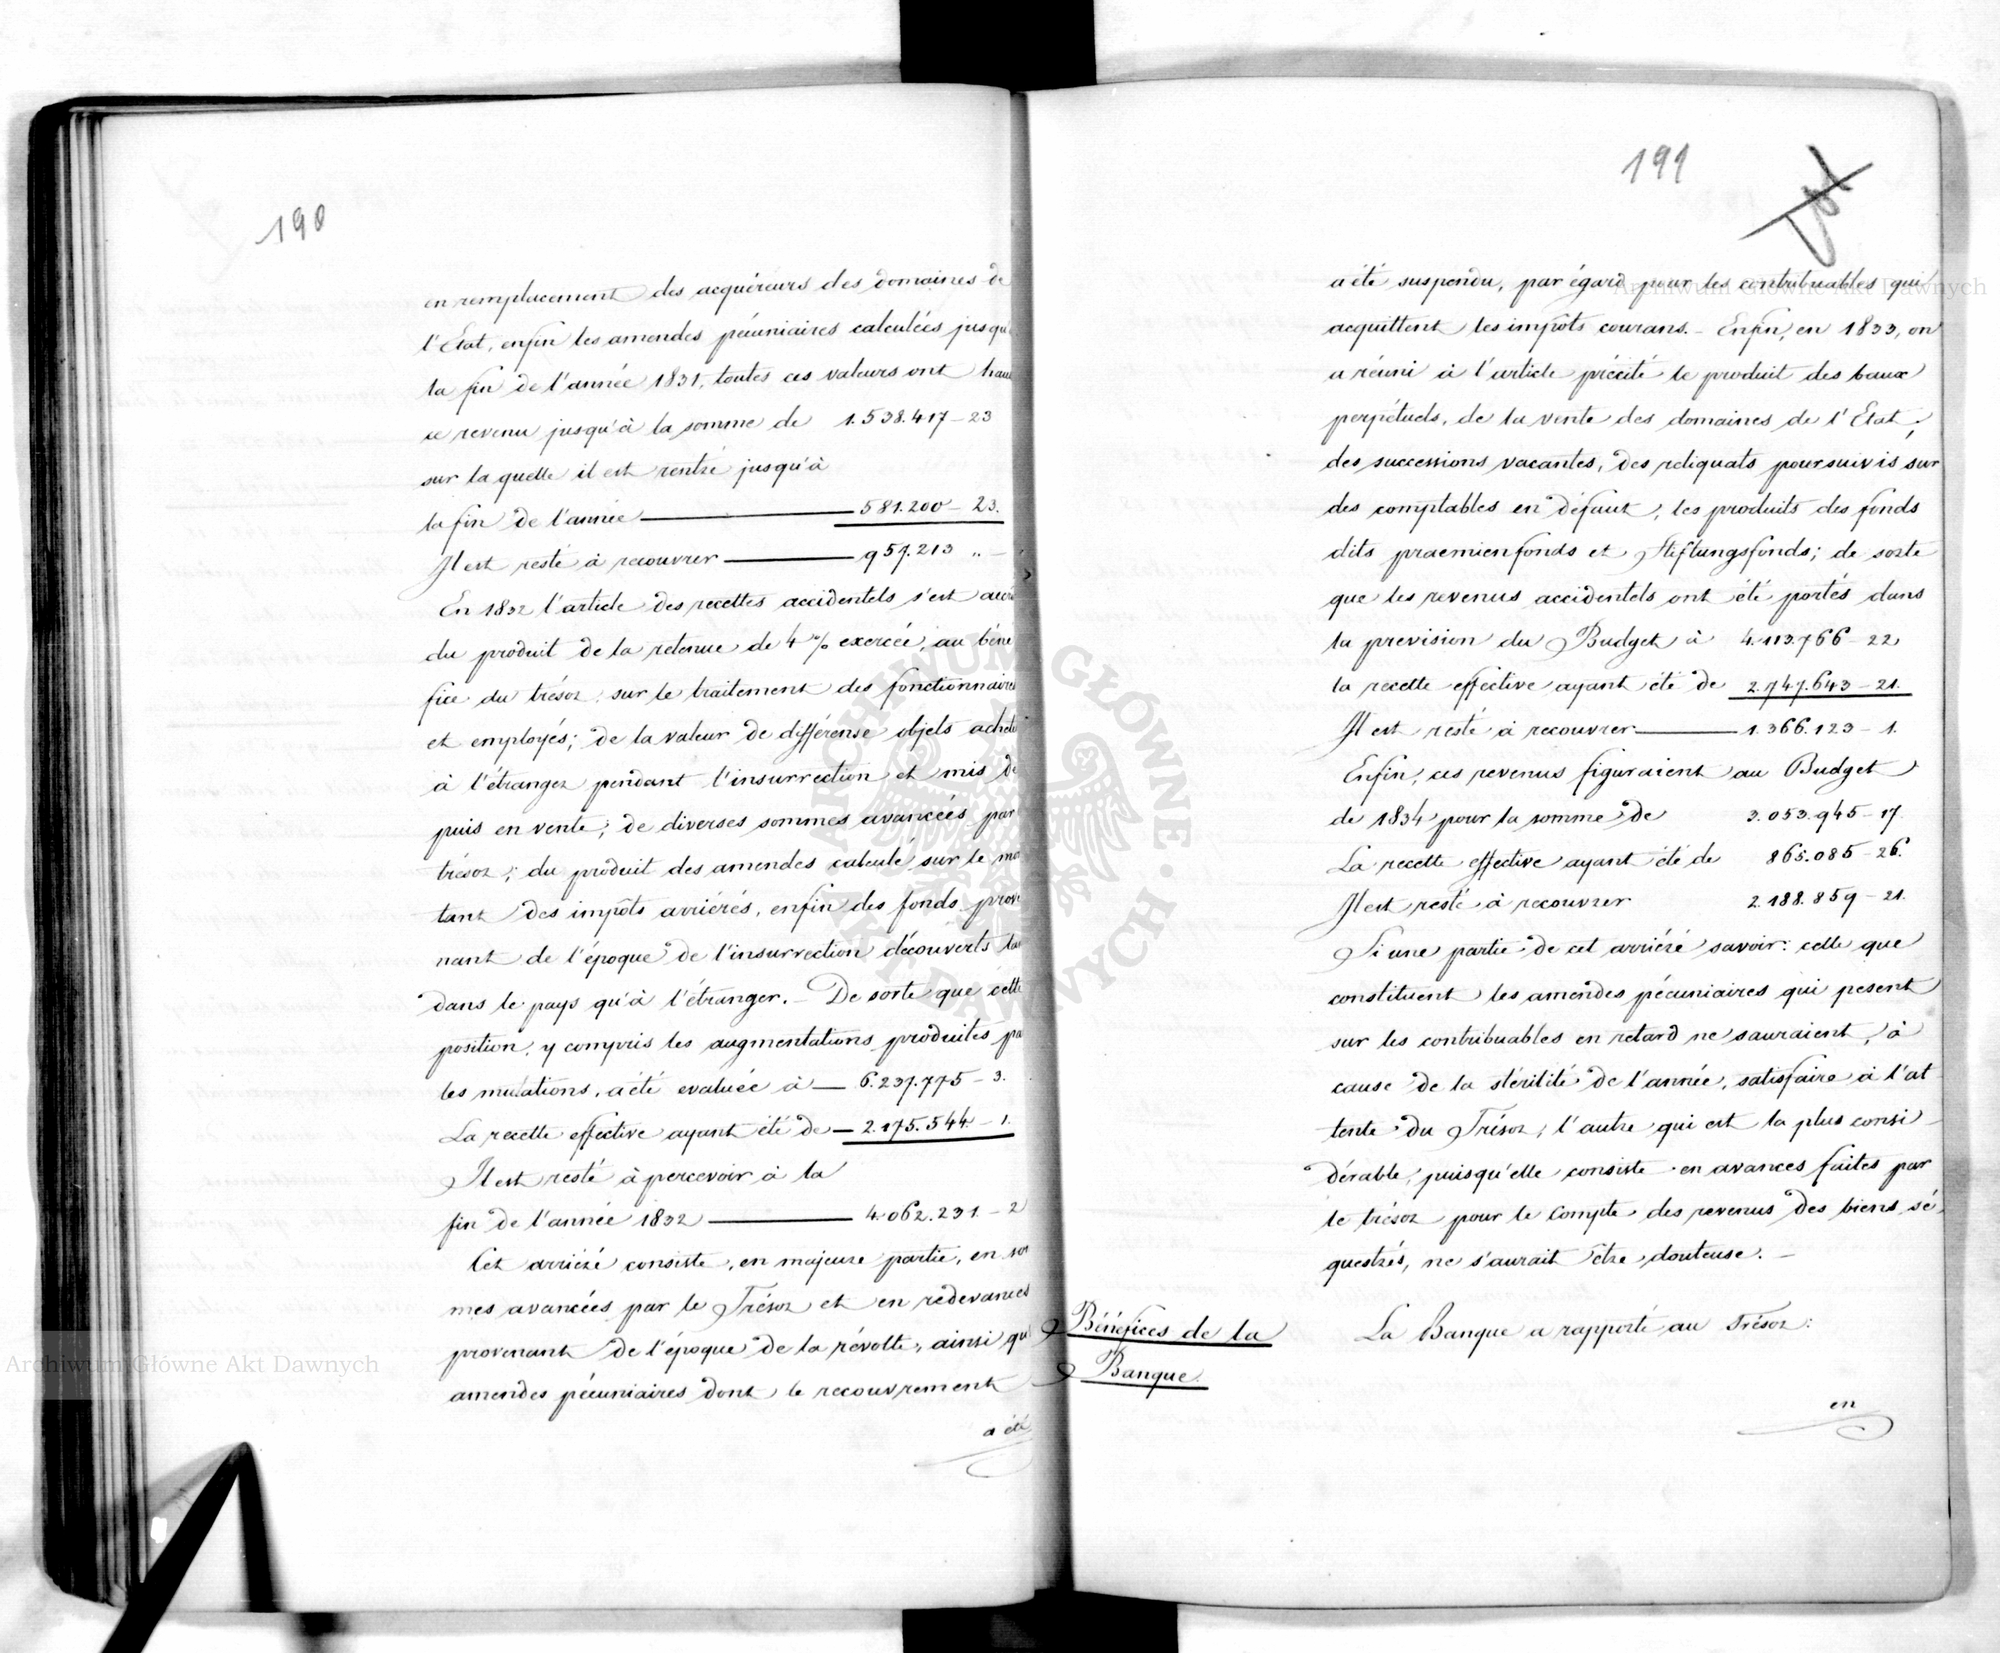 190
en remplacement des acquéreurs des domaines de
l'Etat, enfin les amendes pécuniaires calculées jusqu'
la fin de l'année 1831, toutes ces valeurs ont hau
ce revenu jusqu'à la somme de 1.538.417 - 23
sur la quelle il est rentré jusqu'à
la fin de l'année — 581.200 - 23.
Il est resté à recouvrer — 957.213 „ -
En 1832 l'article des recettes accidentels s'est accr
du produit de la retenue de 4 % exercée, au béné
fice du trésor, sur le traitement des fonctionnaires
et employés; de la valeur de différense objets acheté
à l'étranger pendant l'insurrection et mis de
puis en vente; de diverses sommes avancées par
trésor; du produit des amendes calculé sur le mo
tant des impôts arriérés, enfin des fonds prove
nant de l'époque de l'insurrection découverts ta
dans le pays qu'à l'étranger. - De sorte que cette
position, y compris les augmentations produites pa
les mutations, a été evaluée à — 6.237.775 - 3.
La recette effective ayant été de — 2.175.544 - 1.
Il est resté à percevoir à la
fin de l'année 1832 — 4.062.231 - 2
Cet arriéré consiste, en majeure partie, en som
mes avancées par le Trésor et en redevances
provenant de l'époque de la révolte, ainsi qu
amendes pécuniaires dont le recouvrement
a été
191
a été suspendu, par égard pour les contribuables qui
acquittent les impôts courans. - Enfin, en 1833, on
a réuni à l'article précité le produit des baux
perpétuels, de la vente des domaines de l'Etat;
des successions vacantes, des reliquats poursuivis sur
des comptables en défaut, les produits des fonds
dits praemienfonds et Stiftungsfonds; de sorte
que les revenus accidentels ont été portés dans
la prevision du Budget à 4.113.766 - 22
la recette effective ayant été de 2.747.643 - 21.
Il est resté à recouvrer — 1.366.123 - 1.
Enfin, ces revenus figuraient au Budget
de 1834 pour la somme de 3.053.945 - 17
La recette effective ayant été de 865.085 - 26.
Il est resté à recouvrer 2.188.859 - 21.
Si une partie de cet arriéré savoir: celle que
constituent les amendes pécuniaires qui pesent
sur les contribuables en retard ne sauraient, à
cause de la stérilité de l'année, satisfaire à l'at
tente du Trésor; l'autre qui est la plus consi-
dérable, puisqu'elle consiste en avances faites par
le trésor pour le Compte des revenus des biens sé
questrés, ne s'aurait être douteuse. -
Bénéfices de la
Banque.
La Banque a rapporté au Trésor:
en
Archiwum Główne Akt Dawnych
Archiwum Główne Akt Dawnych
ARCHIWUM GŁÓWNE · AKT DAWNYCH ·